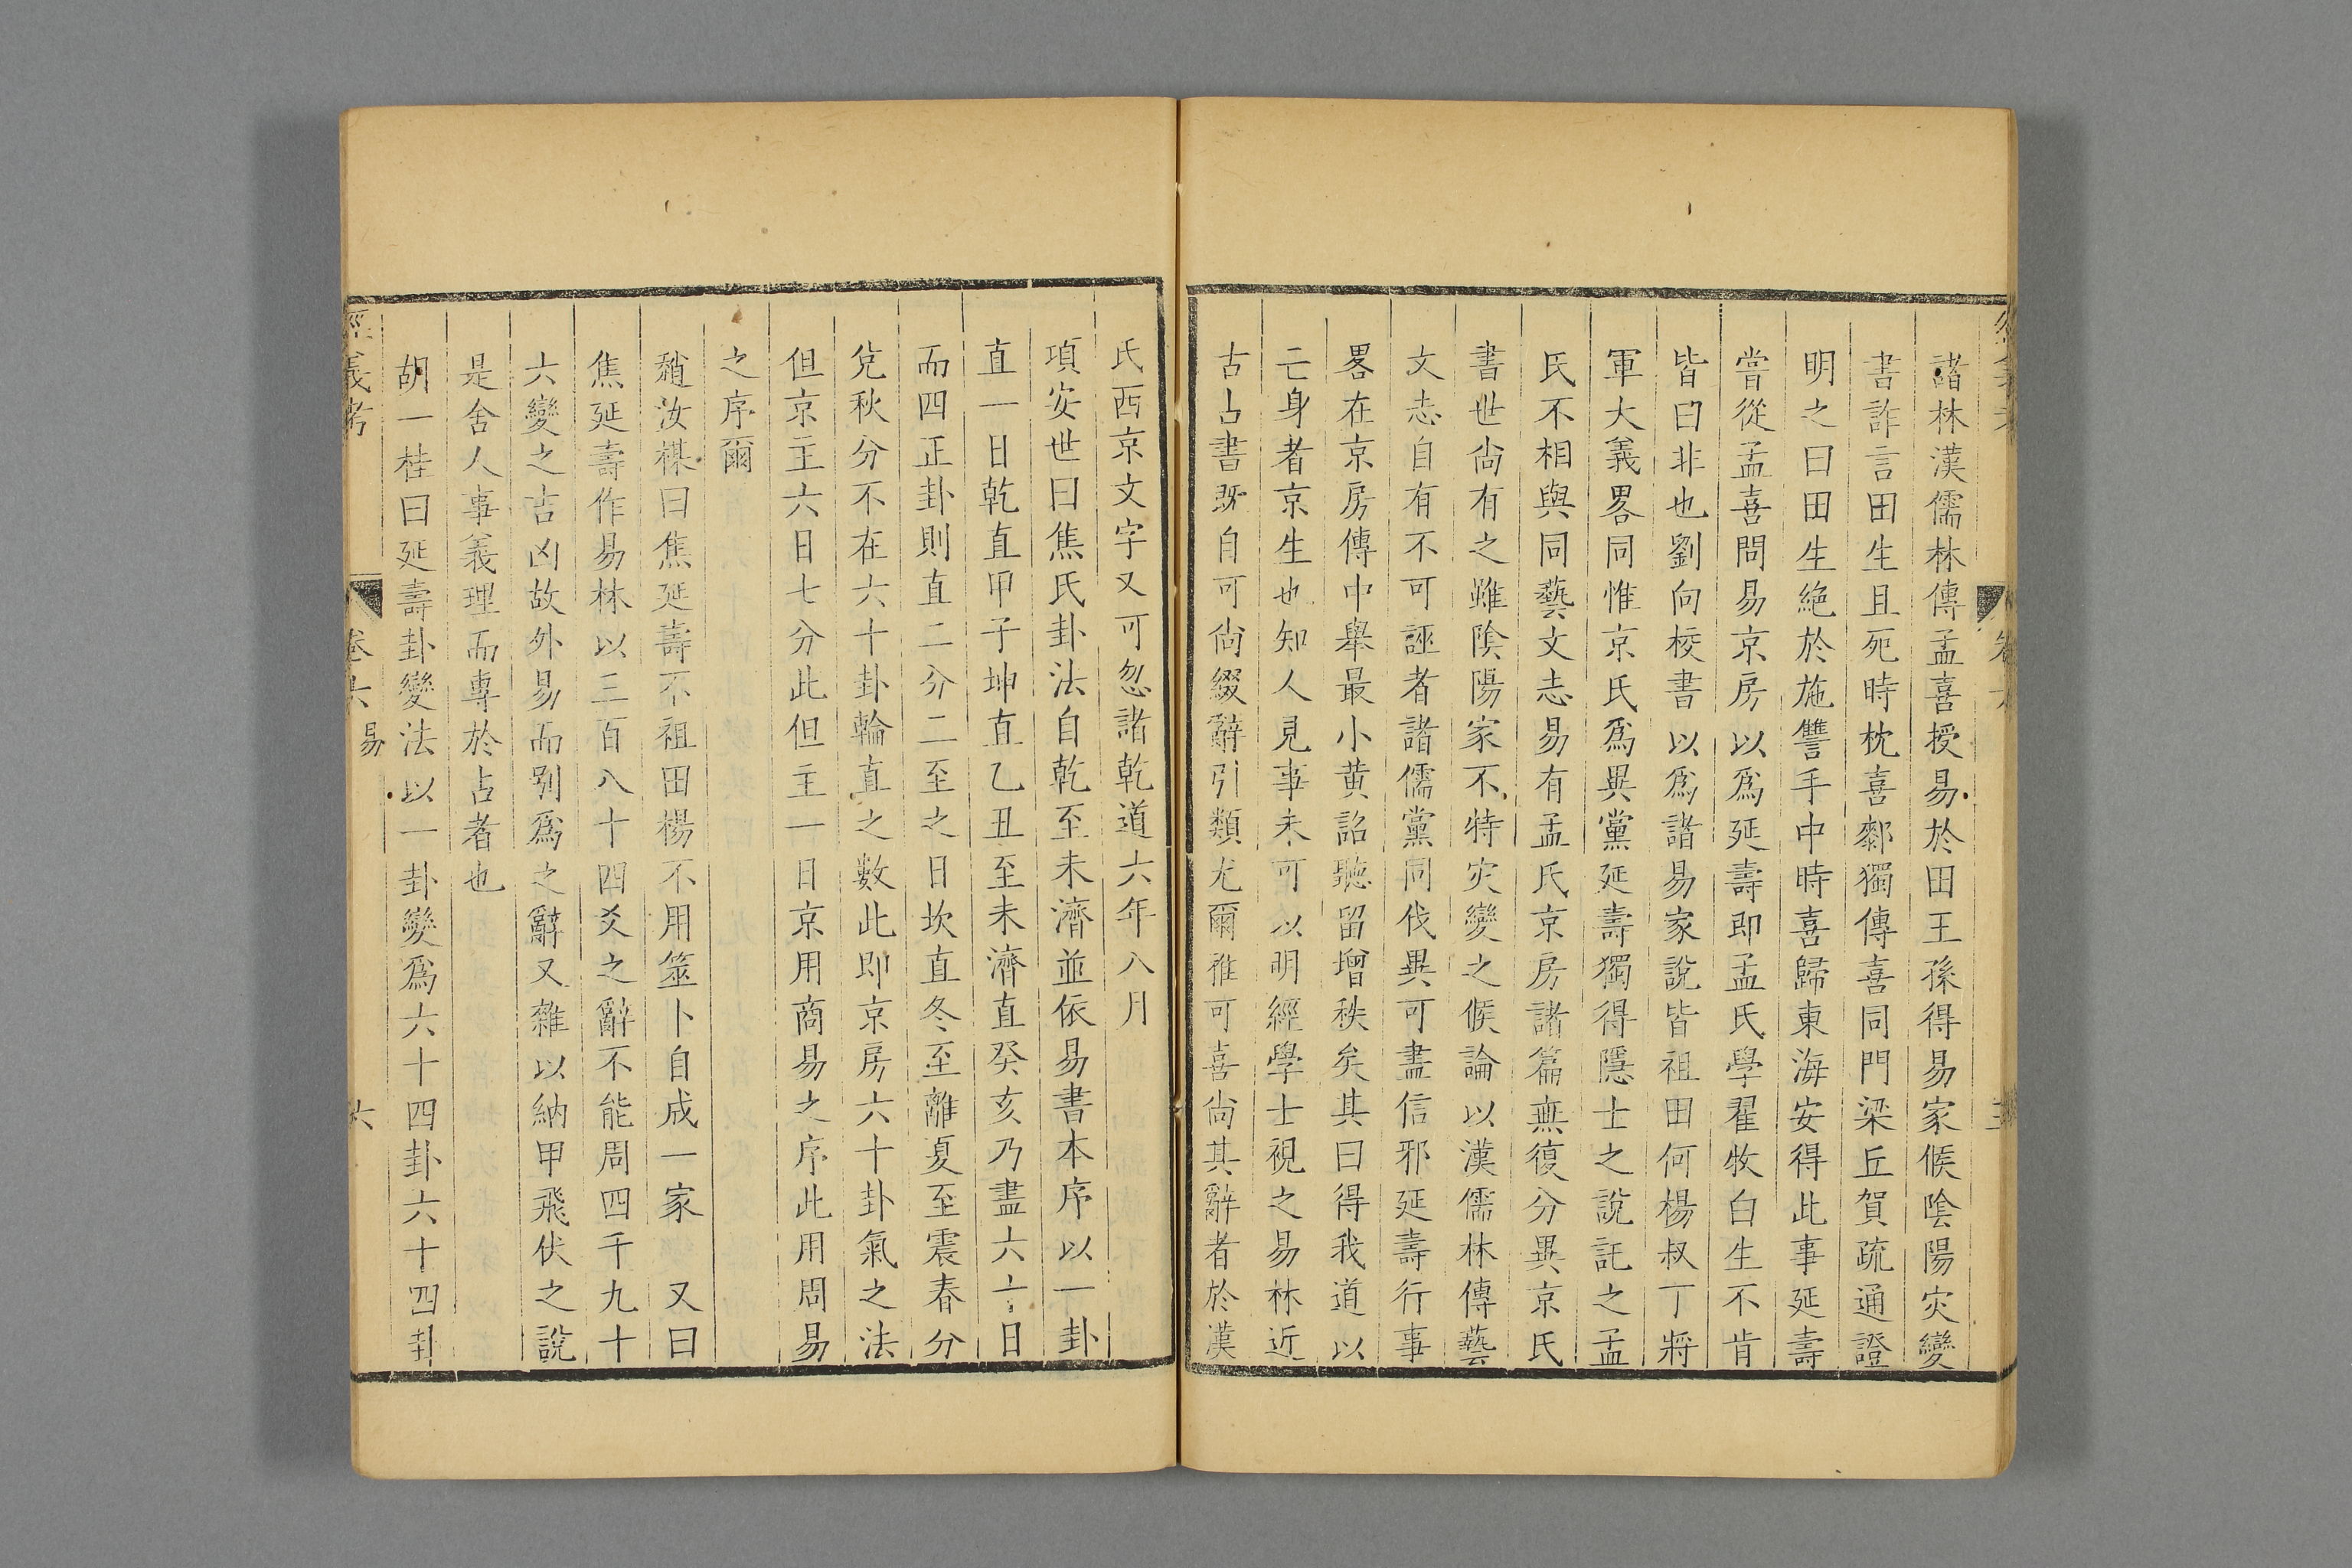 諸林漢儒林傳孟喜授易於田王孫得易家候陰陽灾變
書詐言田生且死時枕喜厀獨傳喜同門梁丘賀疏通證
明之曰田生絶於施讐手中時喜歸東海安得此事延壽
嘗從孟喜問易京房以爲延壽即孟氏學翟牧白生不肯
皆曰非也劉向校書以爲諸易家說皆祖田何楊叔丁將
軍大義畧同惟京氏爲異黨延壽獨得隱士之說託之孟
氏不相與同藝文志易有孟氏京房諸篇無復分異京氏
書世尙有之雖陰陽家不特灾變之候論以漢儒林傳藝
文志自有不可誣者諸儒黨同伐異可盡信邪延壽行事
畧在京房傳中舉最小黄詔聽留增秩矣其曰得我道以
亡身者京生也知人見事未可以明經學士視之易林近
古占書旣自可尙綴辭引類尤爾雅可喜尙其辭者於漢
氏西京文字又可忽諸乾道六年八月
項安世曰焦氏卦法自乾至未濟並依易書本序以一卦
直一日乾直甲子坤直乙丑至未濟直癸亥乃盡六十日
而四正卦則直二分二至之日坎直冬至離夏至震春分
兌秋分不在六十卦輪直之數此即京房六十卦氣之法
但京主六日七分此但主一日京用商易之序此用周易
之序爾
趙汝楳曰焦延壽不祖田楊不用筮卜自成一家 又曰
焦延壽作易林以三百八十四爻之辭不能周四千九十
六變之吉凶故外易而別爲之辭又雜以納甲飛伏之說
是舍人事義理而專於占者也
胡一桂曰延壽卦變法以一卦變爲六十四卦六十四卦
經義考 卷六 易 六